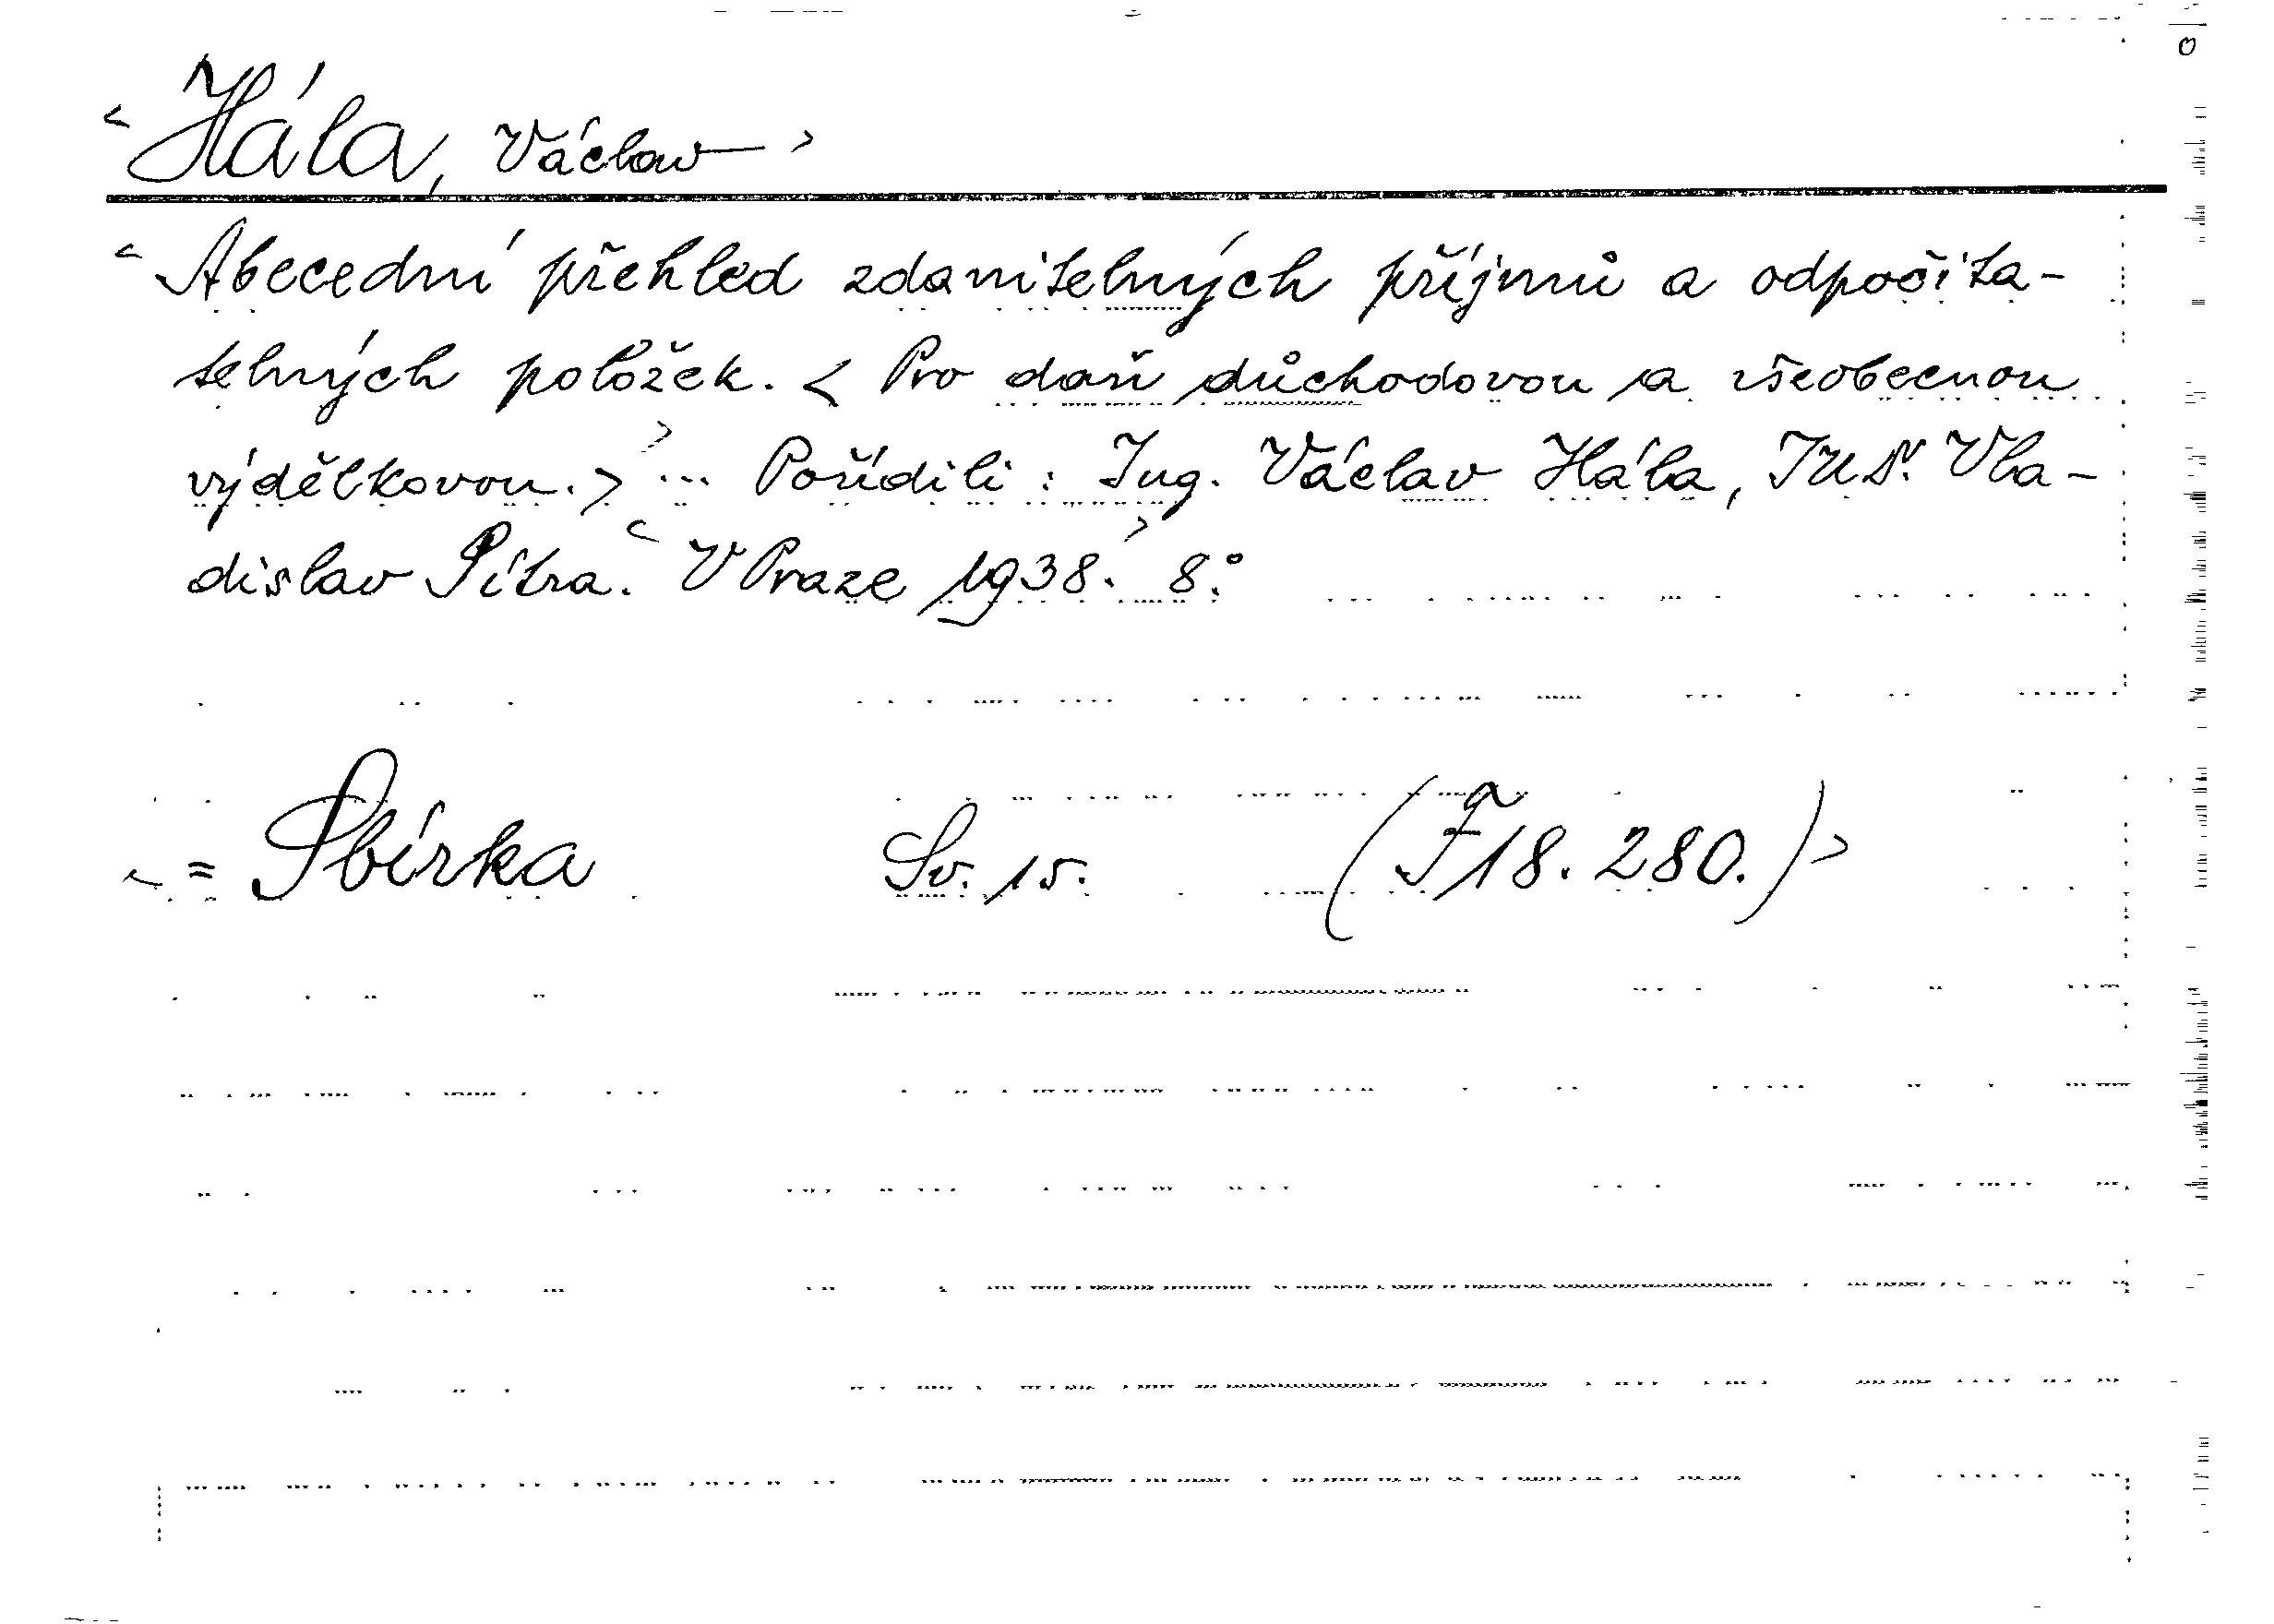 < Hála, Václav >
< Abecední přehled zdanitelných příjmů a odpočita-
telných položek. < Pro daň důchodovou a všeobecnou
výdělkovou. > > ... Pořídili : Ing. Václav Hála, JUDr. Vla-
dislav Pítra. < V Praze 1938. > 8.°
< = Sbírka Sv. 15. (F 18. 280.) >